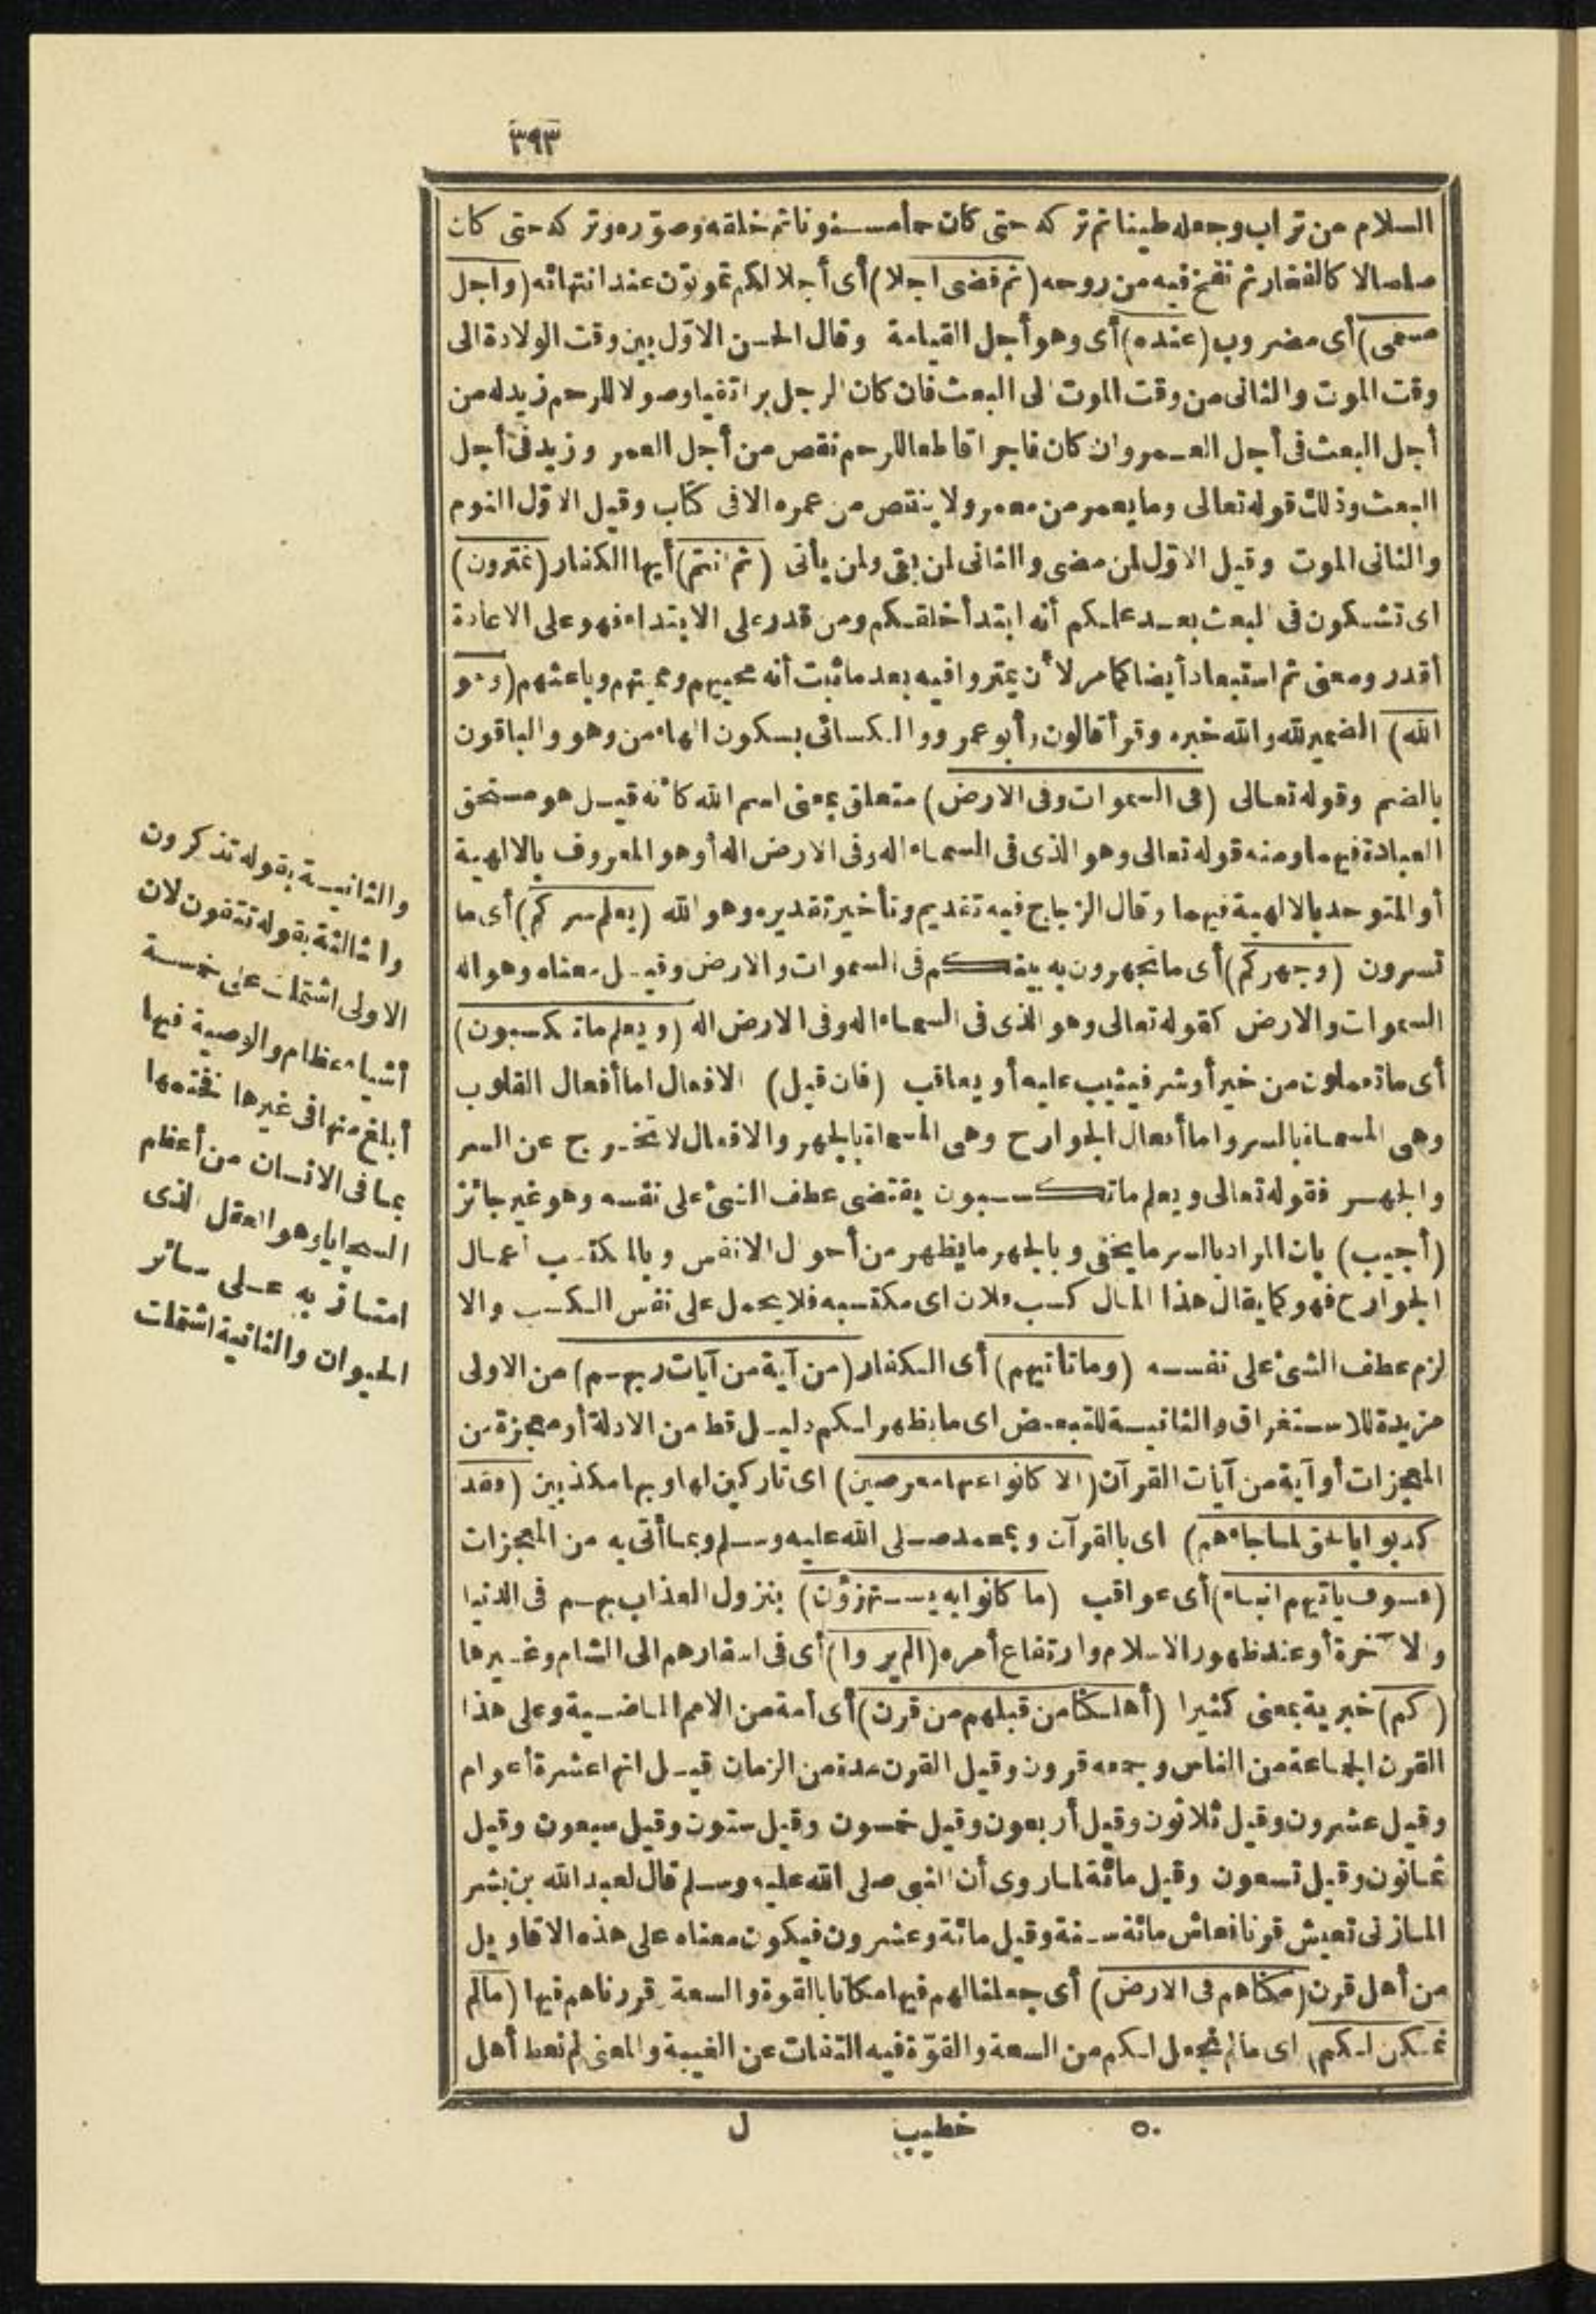 ٣٩٣
السلام من تراب وجعله طينا ثم تركه حتى كان حمأ مسنونا ثم خلقه وصوّره وتركه حتى كان
صلصالا كالفخار ثم نفخ فيه من روحه (ثم قضى اجلا) أى أجلا لكم تموتون عند انتهائه (واجل
مسمى) أى مضروب (عنده) أى وهو أجل القيامة وقال الحسن الاوّل بين وقت الولادة الى
وقت الموت والثانى من وقت الموت الى البعث فان كان الرجل برا تقيا وصولا للرحم زيد له من
أجل البعث فى أجل العمر وان كان فاجرا قاطعا للرحم نقص من أجل العمر وزيد فى أجل
البعث وذلك قوله تعالى وما يعمر من معمر ولا ينقص من عمره الا فى كتاب وقيل الاوّل النوم
والثانى الموت وقيل الاوّل لمن مضى والثانى لمن بقى ولمن يأتى (ثم انتم) أيها الكفار (تمترون)
اى تشكون فى البعث بعد علمكم أنه ابتدأ خلقكم ومن قدر على الابتداء فهو على الاعادة
أقدر ومعنى ثم استبعاد أيضا كما مر لأن يمتروا فيه بعد ما ثبت أنه محييهم ومميتهم وباعثهم (وهو
الله) الضمير لله والله خبره وقرأ قالون وأبو عمرو والكسائى بسكون الهاء من وهو والباقون
بالضم وقوله تعالى (فى السموات وفى الارض) متعلق بمعنى اسم الله كأنه قيل هو مستحق
العبادة فيهما ومنه قوله تعالى وهو الذى فى السماء اله وفى الارض اله أو هو المعروف بالالهية
أو المتوحد بالالهية فيهما وقال الزجاج فيه تقديم وتأخير تقديره وهو الله (يعلم سركم) أى ما
تسرون (وجهركم) أى ما تجهرون به بينكم فى السموات والارض وقيل معناه وهو اله
السموات والارض كقوله تعالى وهو الذى فى السماء اله وفى الارض اله (ويعلم ما تكسبون)
أى ما تعملون من خير أو شر فيثيب عليه أو يعاقب (فان قيل) الافعال اما أفعال القلوب
وهى المسماة بالسر واما أفعال الجوارح وهى المسماة بالجهر والافعال لا تخرج عن السر
والجهر فقوله تعالى ويعلم ما تكسبون يقتضى عطف الشئ على نفسه وهو غير جائز
(أجيب) بان المراد بالسر ما يخفى وبالجهر ما يظهر من أحوال الانفس وبالمكتسب أعمال
الجوارح فهو كما يقال هذا المال كسب فلان اى مكتسبه فلا يحمل على نفس الكسب والا
لزم عطف الشئ على نفسه (وما تأتيهم) أى الكفار (من آية من آيات ربهم) من الاولى
مزيدة للاستغراق والثانية للتبعيض اى ما يظهر لكم دليل قط من الادلة أو معجزة من
المعجزات أو آية من آيات القرآن (الا كانوا عنها معرضين) اى تاركين لها وبها مكذبين (فقد
كذبوا بالحق لما جاءهم) اى بالقرآن وبمحمد صلى الله عليه وسلم وبما أتى به من المعجزات
(فسوف يأتيهم انباء) أى عواقب (ما كانوا به يستهزؤن) بنزول العذاب بهم فى الدنيا
والآخرة أو عند ظهور الاسلام وارتفاع أمره (الم يروا) أى فى اسفارهم الى الشام وغيرها
(كم) خبرية بمعنى كثيرا (أهلكنا من قبلهم من قرن) أى أمة من الامم الماضية وعلى هذا
القرن الجماعة من الناس وجمعه قرون وقيل القرن مدة من الزمان قيل انها عشرة أعوام
وقيل عشرون وقيل ثلاثون وقيل أربعون وقيل خمسون وقيل ستون وقيل سبعون وقيل
ثمانون وقيل تسعون وقيل مائة لما روى أن النبى صلى الله عليه وسلم قال لعبد الله بن بشر
المازنى تعيش قرنا فعاش مائة سنة وقيل مائة وعشرون فيكون معناه على هذه الاقاويل
من أهل قرن (مكناهم فى الارض) أى جعلنا لهم فيها مكانا بالقوة والسعة وقررناهم فيها (ما لم
نمكن لكم) اى ما لم نجعل لكم من السعة والقوّة فيه التفات عن الغيبة والمعنى لم نعط أهل
٥٠ خطيب ل
والثانية بقوله تذكرون
والثالثة بقوله تتقون لان
الاولى اشتملت على خمسة
أشياء عظام والوصية فيها
أبلغ منها فى غيرها فختمها
بما فى الانسان من أعظم
السجايا وهو العقل الذى
امتاز به على سائر
الحيوان والثانية اشتملت